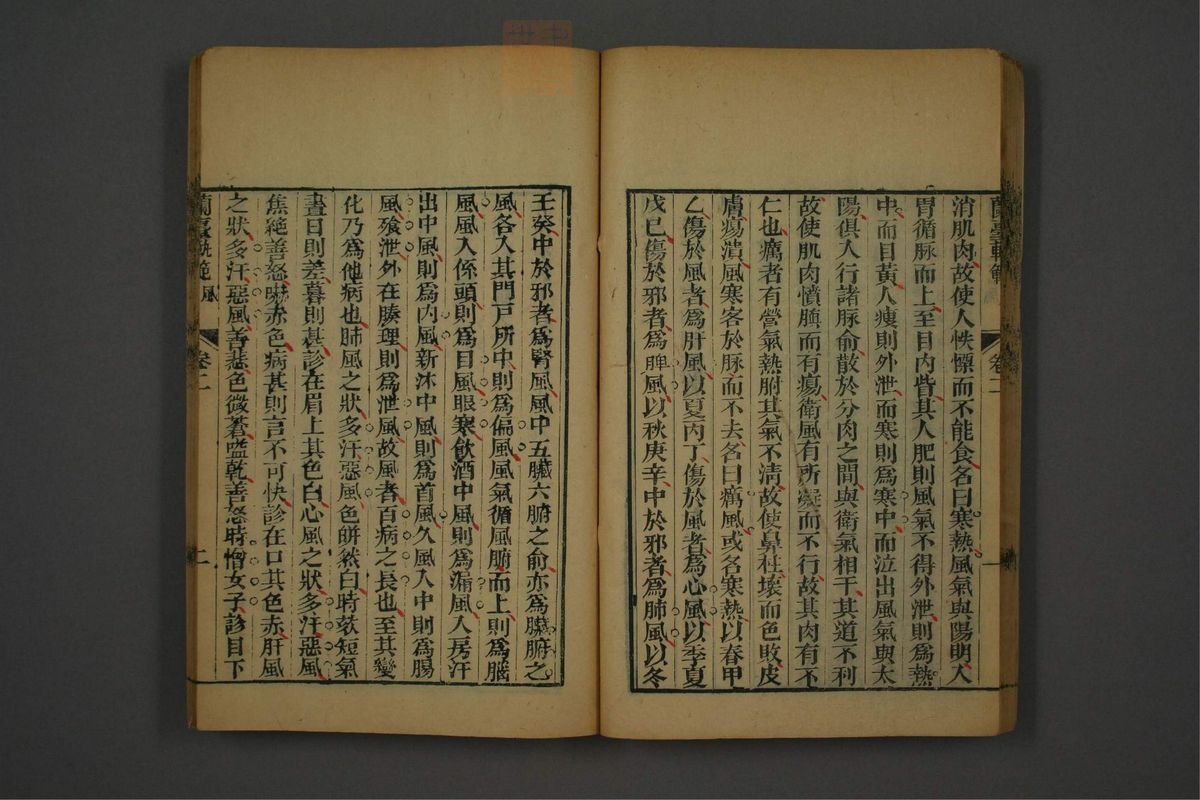 蘭臺軌範 卷二 一
消肌肉故使人怢慄而不能食名曰寒熱風氣與陽明入
胃循脉而上至目內眥其人肥則風氣不得外泄則爲熱
中而目黃人瘦則外泄而寒則爲寒中而泣出風氣與太
陽俱入行諸脉俞散於分肉之間與衛氣相干其道不利
故使肌肉憤䐜而有瘍衛風有所凝而不行故其肉有不
仁也癘者有營氣熱胕其氣不淸故使鼻柱壞而色敗皮
膚瘍潰風寒客於脉而不去名曰癘風或名寒熱以春甲
乙傷於風者爲肝風以夏丙丁傷於風者爲心風以季夏
戊巳傷於邪者爲脾風以秋庚辛中於邪者爲肺風以冬
壬癸中於邪者爲腎風風中五臟六腑之俞亦爲臟腑之
風各入其門戸所中則爲偏風風氣循風腑而上則爲腦
風風入係頭則爲目風眼寒飲酒中風則爲漏風入房汗
出中風則爲內風新沐中風則爲首風久風入中則爲腸
風飱泄外在腠理則爲泄風故風者百病之長也至其變
化乃爲他病也肺風之狀多汗惡風色皏然白時欬短氣
晝日則差暮則甚診在眉上其色白心風之狀多汗惡風
焦絶善怒嚇赤色病甚則言不可快診在口其色赤肝風
之狀多汗惡風善悲色微蒼嗌乾善怒時憎女子診目下
蘭臺軌範 風 卷二 二